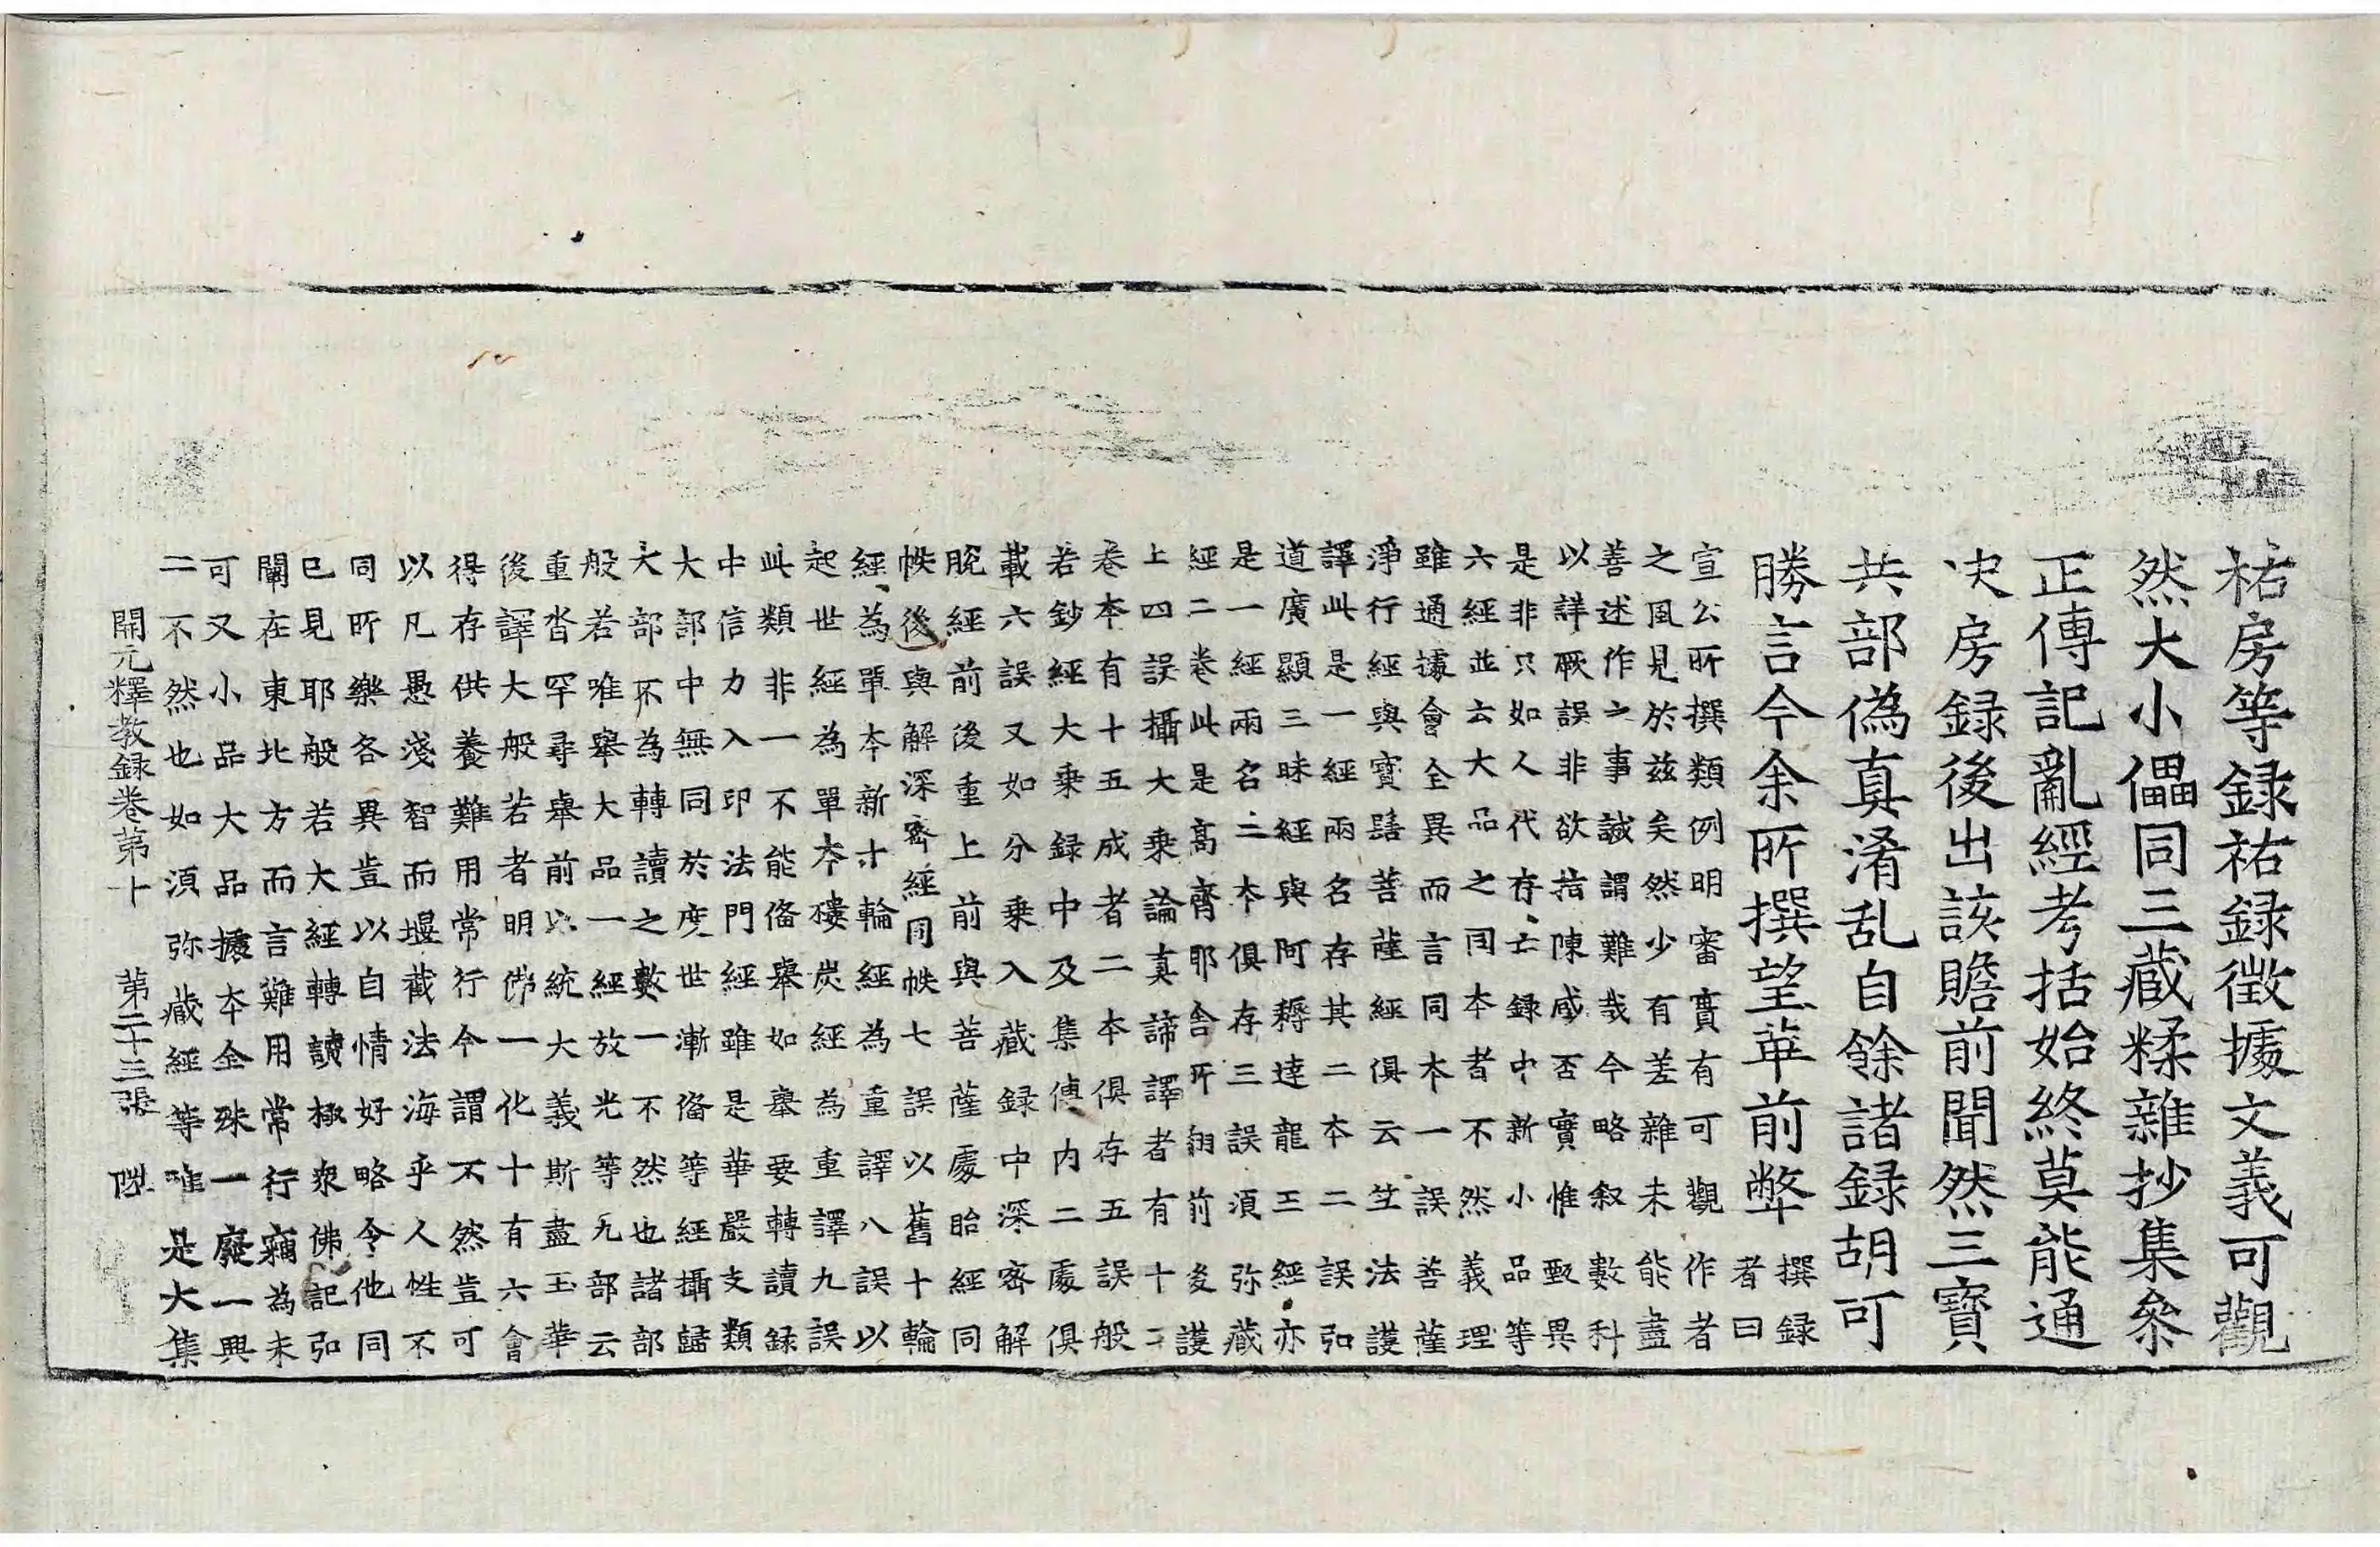 祐房等録祐録徵據文義可觀
然大小儡同三藏糅雜抄集叅
正傳記亂經考括始終莫能通
决房録後出該贍前聞然三寶
共部偽真淆乱自餘諸録胡可
勝言今余所撰望革前弊撰録
者曰
宣公所撰類例明審實有可觀作者
之風見於茲矣然少有差雜未能盡
善述作之事誠謂難哉今略叙數科
以詳厥誤非欲指陳臧否實惟甄異
是非只如人代存亡録中新小品等
六經並云大品之同本者不然義理
雖通據會全異而言同本一誤善薩
淨行經與寶髻菩薩經俱云竺法護
譯此是一經兩名存其二本二誤弘
道廣顯三昧經與阿耨達龍王經亦
是一經兩名二本俱存三誤湏弥藏
經二卷此是高齊耶舍所翻前後護
上四誤攝大乗論真諦譯者有十二
卷本有十五成者二本俱存五誤般
若鈔經大乗録中及集傳内二處俱
載六誤又如分乗入藏録中深密解
脫經前後重上前與菩薩處胎經同
帙後與解深密經同帙七誤以舊十輪
經為單本新十輪經為重譯八誤以
起世經為單本樓炭經為重譯九誤
此類非一不能俻舉如舉要轉讀録
中信力入印法門經雖是華嚴支類
大部中無同於度世漸俻等經攝歸
大部不為轉讀之數一不然也諸部
般若唯舉大品一經放光等九部云
重沓罕尋舉前以統大義斯盡玉華
後譯大般若者明佛一化十有六會
得存供養難用常行今謂不然豈可
以凡愚淺智而堰截法海乎人性不
同所樂各異豈以自情好略令他同
已見耶般若大經轉讀極衆佛記弘
闡在東北方而言難用常行竊為未
可又小品大品據本全殊一廢一興
二不然也如湏弥藏經等唯是大集
開元釋教録卷第十　第二十三張